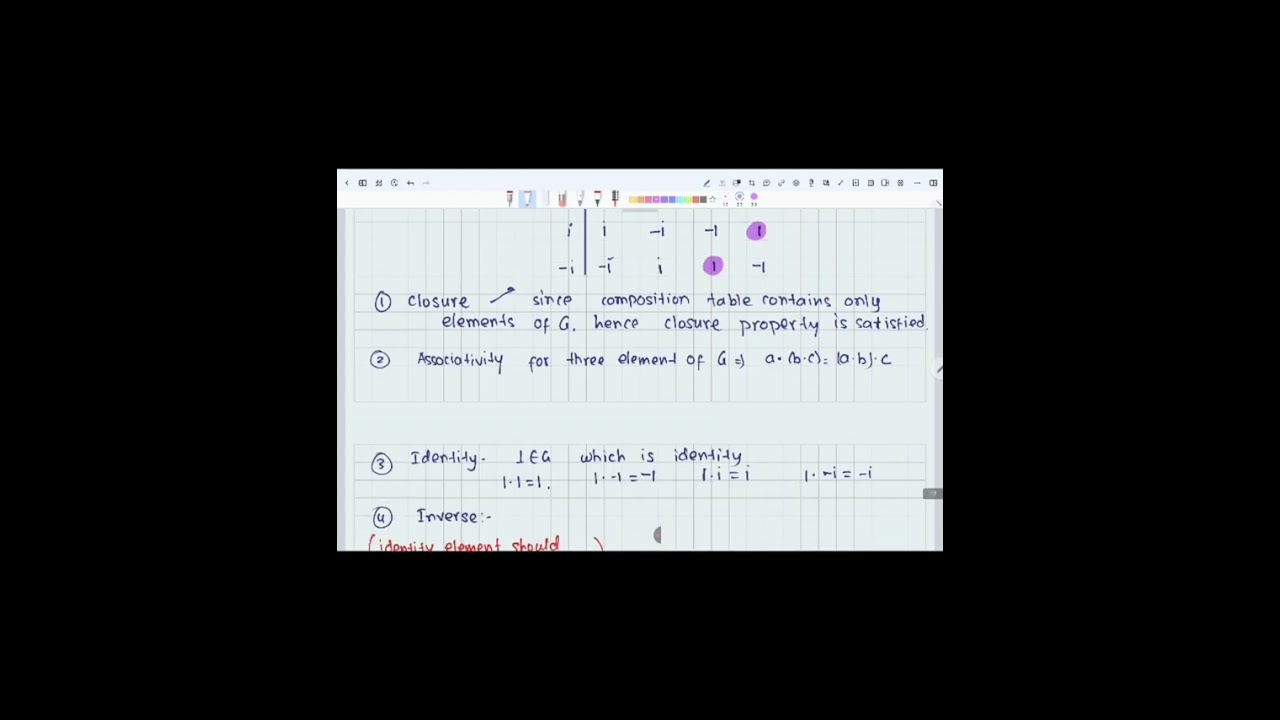 i | i -i -1 1
-i | -i i 1 -1
① closure ✓ since composition table contains only
elements of G. hence closure property is satisfied.
② Associativity for three element of G ⇒ a·(b·c) = (a·b)·c
③ Identity- 1∈G which is identity
1·1=1. 1·-1=-1 1·i=i 1·-i=-i
④ Inverse:-
(identity element should )